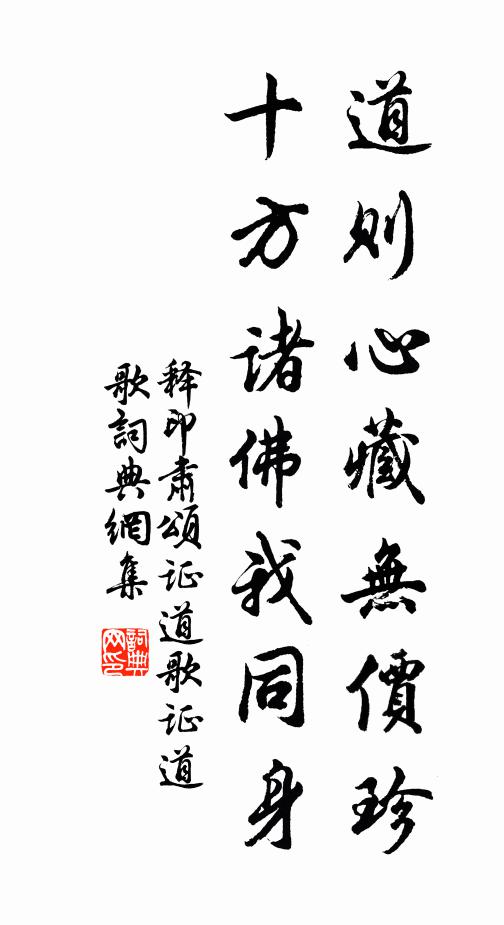 道则心藏無價珍
十方諸佛我同身
释印肃頌证道歌证道
歌詞典網集
詞典
网印